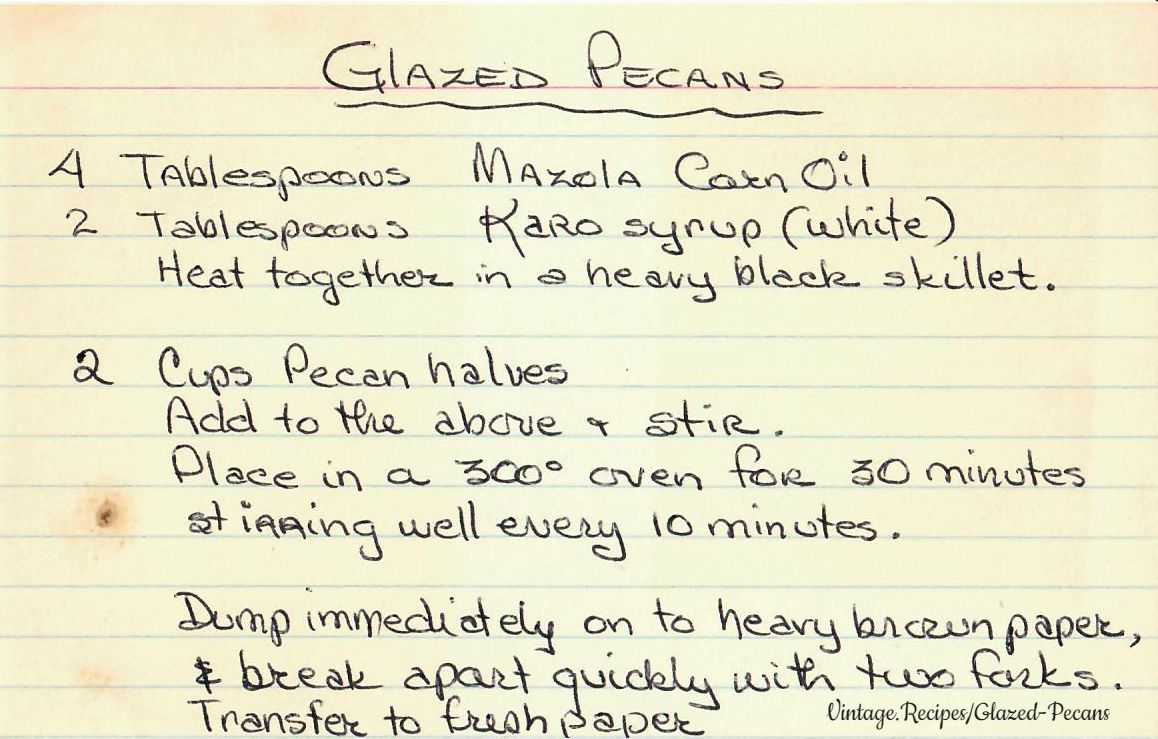 Glazed Pecans
4 Tablespoons Mazola Corn Oil
2 Tablespoons Karo syrup (white)
Heat together in a heavy black skillet.
2 Cups Pecan halves
Add to the above & stir.
Place in a 300° oven for 30 minutes
stirring well every 10 minutes.
Dump immediately on to heavy brown paper,
& break apart quickly with two forks.
Transfer to fresh paper
Vintage.Recipes/Glazed-Pecans